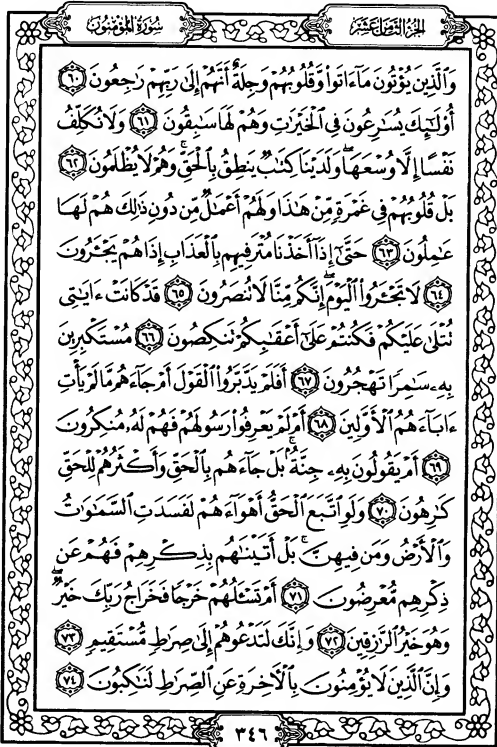 سُورَةُ المُؤْمِنُونَ
الجُزْءُ الثَّامِنَ عَشَرَ
وَٱلَّذِينَ يُؤْتُونَ مَآ ءَاتَوا۟ وَّقُلُوبُهُمْ وَجِلَةٌ أَنَّهُمْ إِلَىٰ رَبِّهِمْ رَٰجِعُونَ ٦٠
أُو۟لَٰٓئِكَ يُسَٰرِعُونَ فِى ٱلْخَيْرَٰتِ وَهُمْ لَهَا سَٰبِقُونَ ٦١ وَلَا نُكَلِّفُ
نَفْسًا إِلَّا وُسْعَهَا ۖ وَلَدَيْنَا كِتَٰبٌ يَنطِقُ بِٱلْحَقِّ ۚ وَهُمْ لَا يُظْلَمُونَ ٦٢
بَلْ قُلُوبُهُمْ فِى غَمْرَةٍ مِّنْ هَٰذَا وَلَهُمْ أَعْمَٰلٌ مِّن دُونِ ذَٰلِكَ هُمْ لَهَا
عَٰمِلُونَ ٦٣ حَتَّىٰٓ إِذَآ أَخَذْنَا مُتْرَفِيهِم بِٱلْعَذَابِ إِذَا هُمْ يَجْـَٔرُونَ
٦٤ لَا تَجْـَٔرُوا۟ ٱلْيَوْمَ ۖ إِنَّكُم مِّنَّا لَا تُنصَرُونَ ٦٥ قَدْ كَانَتْ ءَايَٰتِى
تُتْلَىٰ عَلَيْكُمْ فَكُنتُمْ عَلَىٰٓ أَعْقَٰبِكُمْ تَنكِصُونَ ٦٦ مُسْتَكْبِرِينَ
بِهِۦ سَٰمِرًا تَهْجُرُونَ ٦٧ أَفَلَمْ يَدَّبَّرُوا۟ ٱلْقَوْلَ أَمْ جَآءَهُم مَّا لَمْ يَأْتِ
ءَابَآءَهُمُ ٱلْأَوَّلِينَ ٦٨ أَمْ لَمْ يَعْرِفُوا۟ رَسُولَهُمْ فَهُمْ لَهُۥ مُنكِرُونَ
٦٩ أَمْ يَقُولُونَ بِهِۦ جِنَّةٌۢ ۚ بَلْ جَآءَهُم بِٱلْحَقِّ وَأَكْثَرُهُمْ لِلْحَقِّ
كَٰرِهُونَ ٧٠ وَلَوِ ٱتَّبَعَ ٱلْحَقُّ أَهْوَآءَهُمْ لَفَسَدَتِ ٱلسَّمَٰوَٰتُ
وَٱلْأَرْضُ وَمَن فِيهِنَّ ۚ بَلْ أَتَيْنَٰهُم بِذِكْرِهِمْ فَهُمْ عَن
ذِكْرِهِم مُّعْرِضُونَ ٧١ أَمْ تَسْـَٔلُهُمْ خَرْجًا فَخَرَاجُ رَبِّكَ خَيْرٌ ۖ
وَهُوَ خَيْرُ ٱلرَّٰزِقِينَ ٧٢ وَإِنَّكَ لَتَدْعُوهُمْ إِلَىٰ صِرَٰطٍ مُّسْتَقِيمٍ ٧٣
وَإِنَّ ٱلَّذِينَ لَا يُؤْمِنُونَ بِٱلْـَٔاخِرَةِ عَنِ ٱلصِّرَٰطِ لَنَٰكِبُونَ ٧٤
٣٤٦